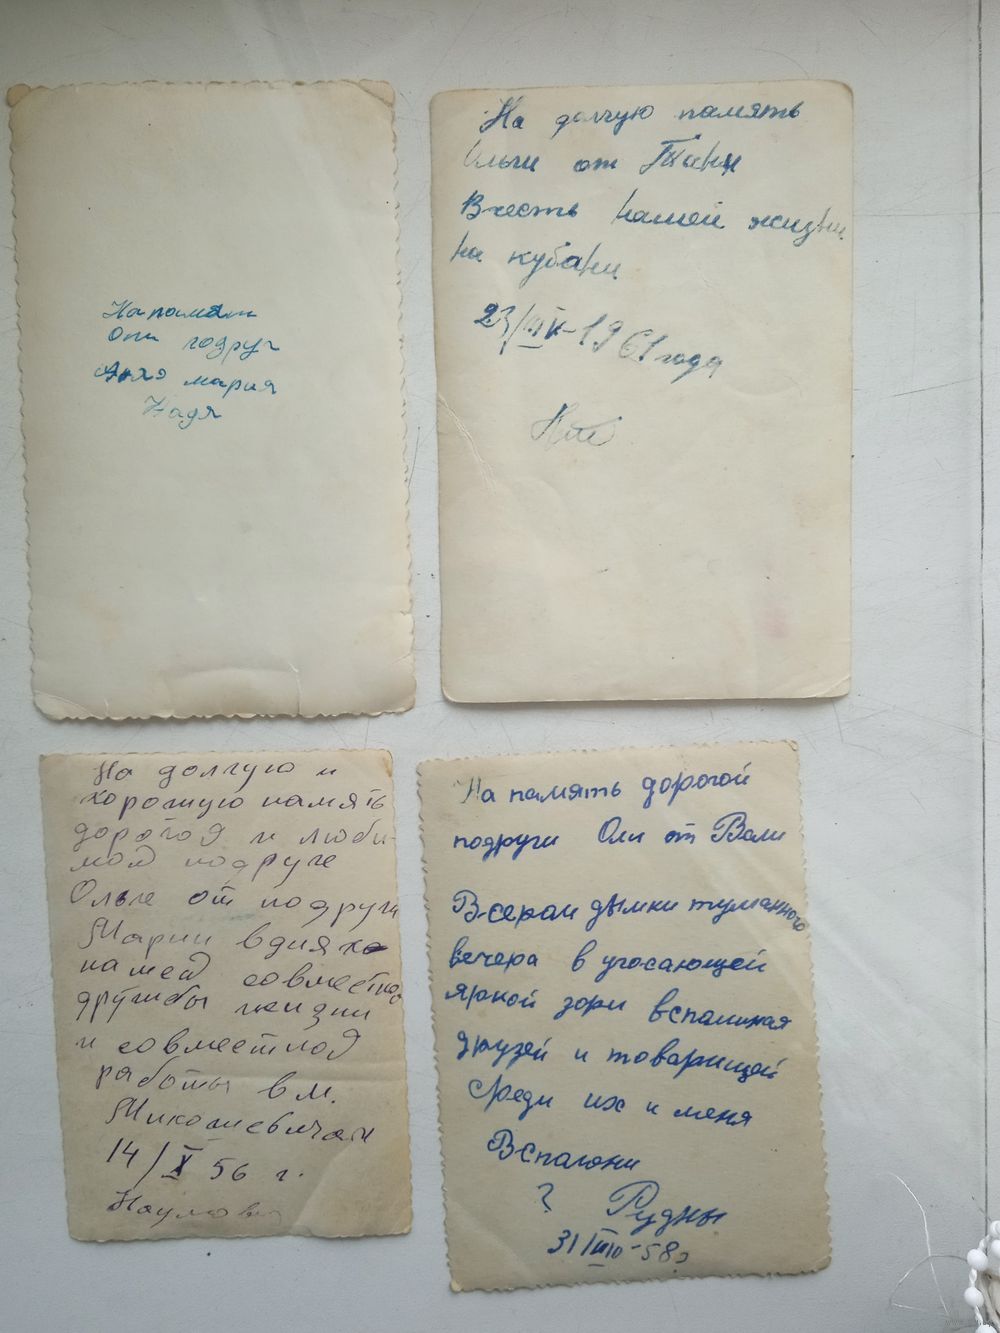 На памят
От подруг
мария
Надя
На долгую память
Ольги от Тани
Вчесть нашей жизни
на кубани
23/IV-1961 года
На долгую и
хорошую память
дорогой и люби-
мой подруге
Ольге от подруги
Марии вдиях
нашей совместно
дружбы жизни
и совместной
работы в м.
Миколаевичах
14/X 56 г.
Наумова
На память дорогой
подруги Оли от Вали
В серой дымки туманного
вечера в угосающей
яркой зори вспоминая
друзей и товарищей
среди их и меня
Вспомни
? Рудны
31/III-58г